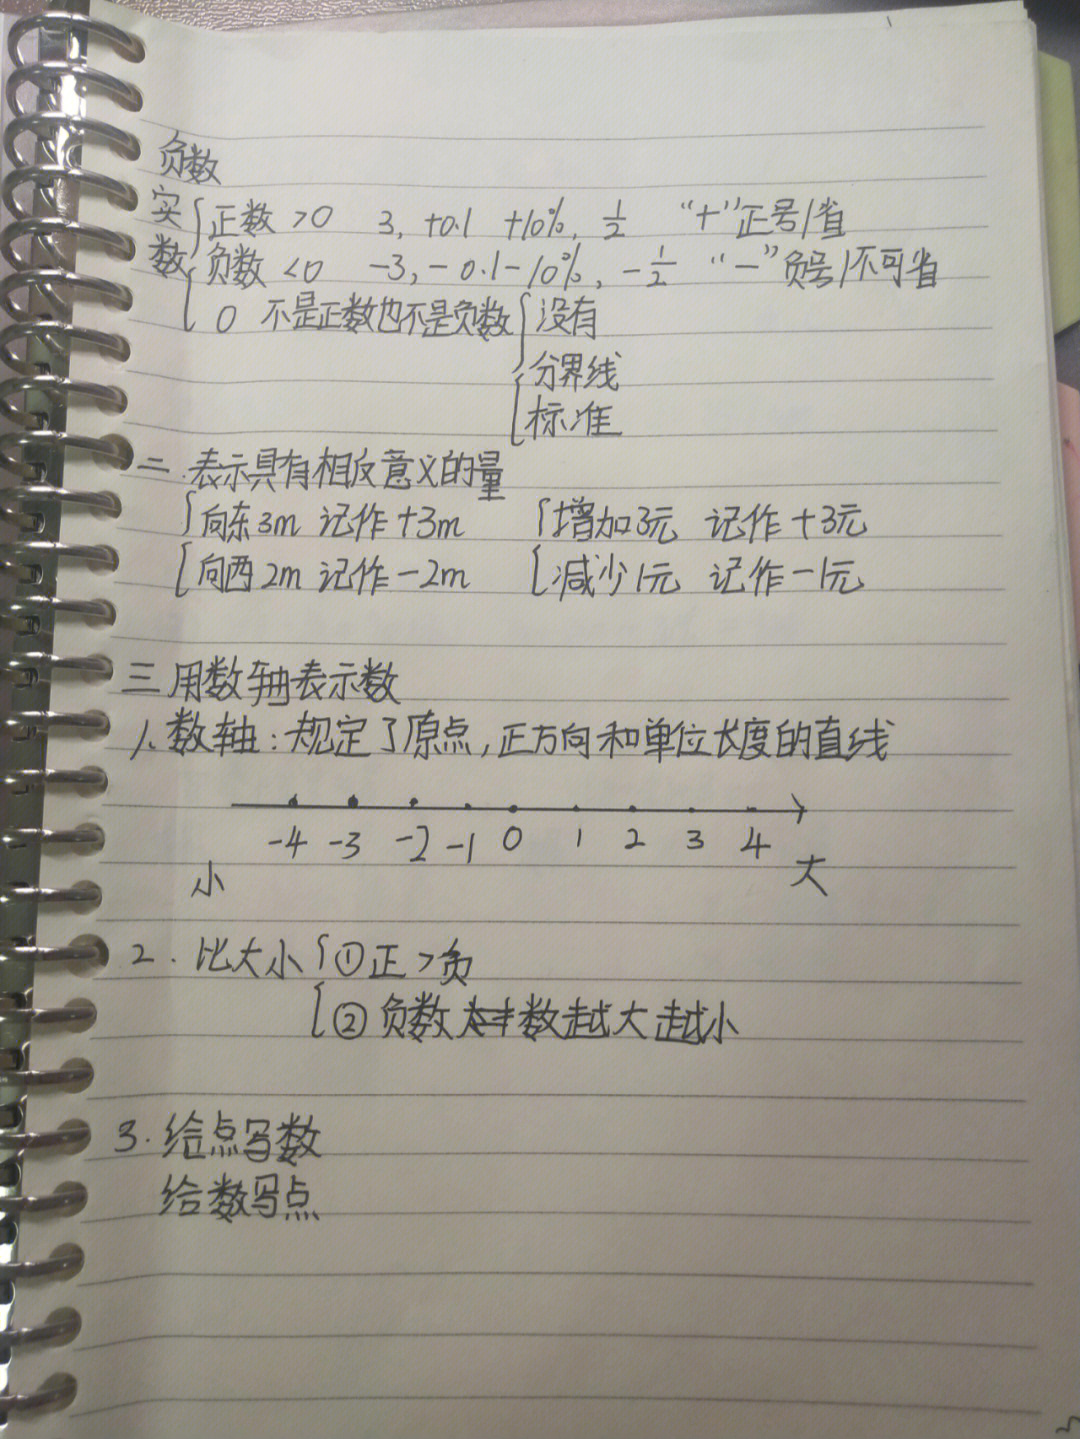 负数
实数
正数 >0 3, +0.1 +10%, 1/2 “+”正号/省
负数 <0 -3, -0.1 -10%, -1/2 “-”负号/不可省
0 不是正数也不是负数 没有
分界线
标准
二.表示具有相反意义的量
向东3m 记作+3m 增加3元 记作+3元
向西2m 记作-2m 减少1元 记作-1元
三用数轴表示数
1、数轴:规定了原点,正方向和单位长度的直线
-4 -3 -2 -1 0 1 2 3 4
小 大
2. 比大小 ①正>负
②负数 数越大越小
3. 给点写数
给数写点